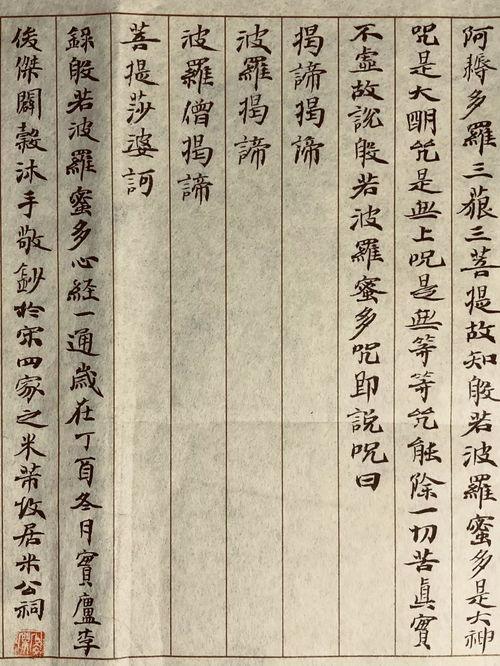 阿耨多羅三藐三菩提故知般若波羅蜜多是大神
咒是大明咒是無上咒是無等等咒能除一切苦眞實
不虛故說般若波羅蜜多咒即說咒曰
揭諦揭諦
波羅揭諦
波羅僧揭諦
菩提莎婆訶
錄般若波羅蜜多心経一通歲在丁酉冬月實廬李
俊傑闢穀沐手敬鈔於宋四家之米芾故居米公祠